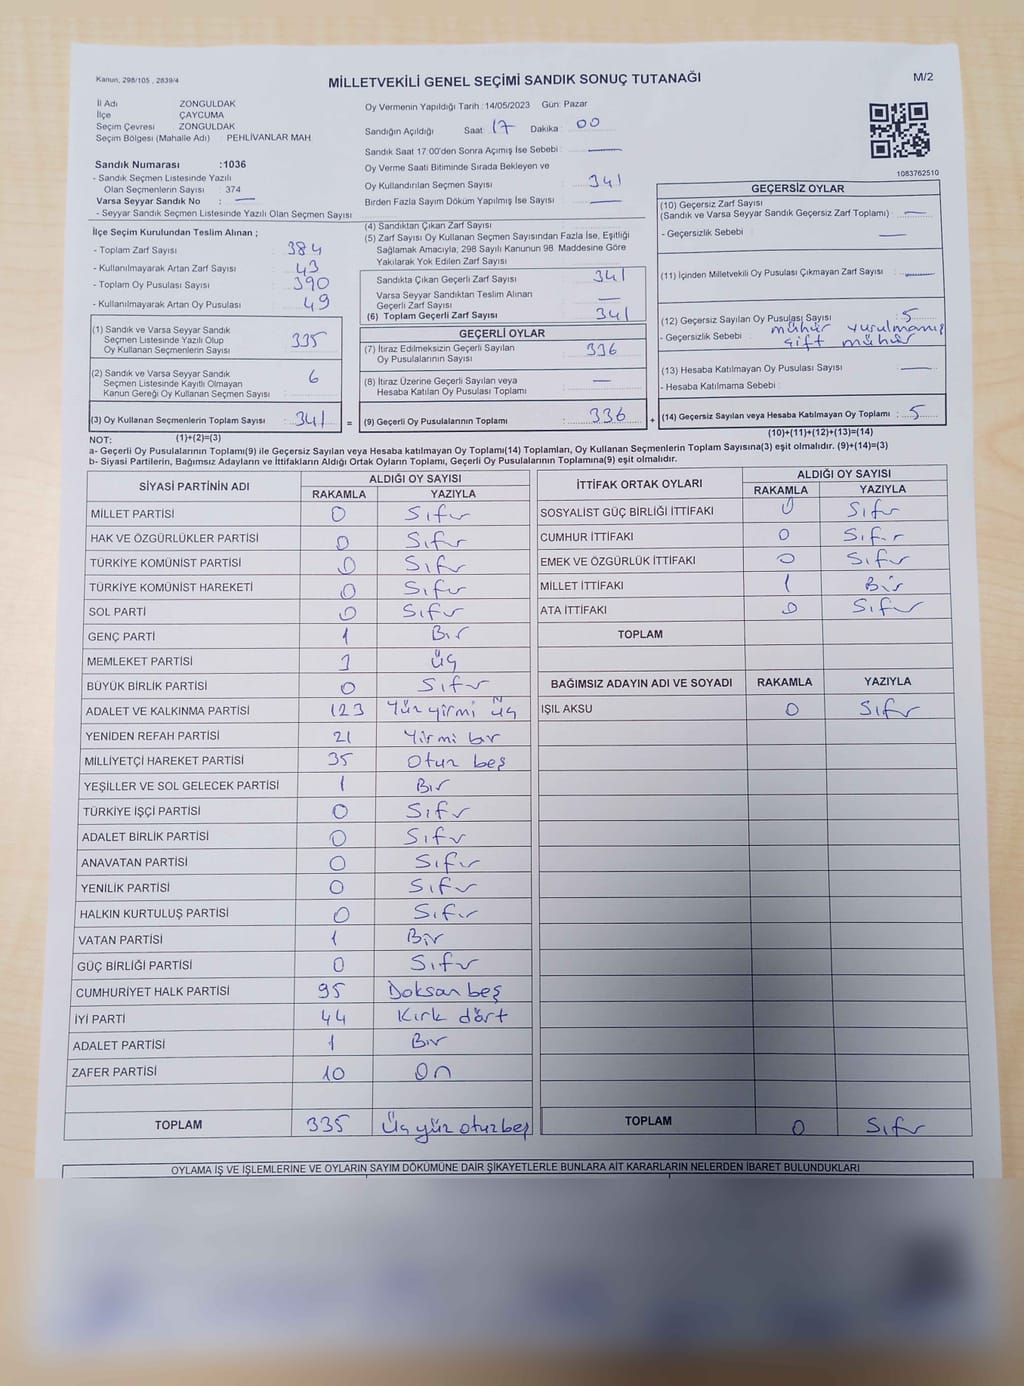 Kanun, 298/105 , 2839/4
MİLLETVEKİLİ GENEL SEÇİMİ SANDIK SONUÇ TUTANAĞI
M/2
İl Adı ZONGULDAK
İlçe ÇAYCUMA
Seçim Çevresi ZONGULDAK
Seçim Bölgesi (Mahalle Adı) PEHLİVANLAR MAH
Sandık Numarası :1036
- Sandık Seçmen Listesinde Yazılı
Olan Seçmenlerin Sayısı : 374
Varsa Seyyar Sandık No : —
- Seyyar Sandık Seçmen Listesinde Yazılı Olan Seçmen Sayısı
Oy Vermenin Yapıldığı Tarih :14/05/2023 Gün: Pazar
Sandığın Açıldığı Saat 17 Dakika 00
Sandık Saat 17:00'den Sonra Açımış İse Sebebi : —
Oy Verme Saati Bitiminde Sırada Bekleyen ve
Oy Kullandırılan Seçmen Sayısı 341
Birden Fazla Sayım Döküm Yapılmış İse Sayısı —
1083762510
İlçe Seçim Kurulundan Teslim Alınan ;
- Toplam Zarf Sayısı : 384
- Kullanılmayarak Artan Zarf Sayısı : 43
- Toplam Oy Pusulası Sayısı : 390
- Kullanılmayarak Artan Oy Pusulası : 49
(1) Sandık ve Varsa Seyyar Sandık
Seçmen Listesinde Yazılı Olup
Oy Kullanan Seçmenlerin Sayısı : 335
(2) Sandık ve Varsa Seyyar Sandık
Seçmen Listesinde Kayıtlı Olmayan
Kanun Gereği Oy Kullanan Seçmen Sayısı : 6
(3) Oy Kullanan Seçmenlerin Toplam Sayısı : 341
(1)+(2)=(3)
(4) Sandıktan Çıkan Zarf Sayısı :
(5) Zarf Sayısı Oy Kullanan Seçmen Sayısından Fazla İse, Eşitliği
Sağlamak Amacıyla, 298 Sayılı Kanunun 98. Maddesine Göre
Yakılarak Yok Edilen Zarf Sayısı :
Sandıkta Çıkan Geçerli Zarf Sayısı : 341
Varsa Seyyar Sandıktan Teslim Alınan
Geçerli Zarf Sayısı : —
(6) Toplam Geçerli Zarf Sayısı : 341
GEÇERLİ OYLAR
(7) İtiraz Edilmeksizin Geçerli Sayılan
Oy Pusulalarının Sayısı : 336
(8) İtiraz Üzerine Geçerli Sayılan veya
Hesaba Katılan Oy Pusulası Toplamı : —
= (9) Geçerli Oy Pusulalarının Toplamı : 336
GEÇERSİZ OYLAR
(10) Geçersiz Zarf Sayısı
(Sandık ve Varsa Seyyar Sandık Geçersiz Zarf Toplamı) : —
- Geçersizlik Sebebi : —
(11) İçinden Milletvekili Oy Pusulası Çıkmayan Zarf Sayısı : —
(12) Geçersiz Sayılan Oy Pusulası Sayısı : 5
- Geçersizlik Sebebi : mühür vurulmamış
çift mühür
(13) Hesaba Katılmayan Oy Pusulası Sayısı : —
- Hesaba Katılmama Sebebi :
+ (14) Geçersiz Sayılan veya Hesaba Katılmayan Oy Toplamı : 5
(10)+(11)+(12)+(13)=(14)
NOT:
a- Geçerli Oy Pusulalarının Toplamı(9) ile Geçersiz Sayılan veya Hesaba katılmayan Oy Toplamı(14) Toplamları, Oy Kullanan Seçmenlerin Toplam Sayısına(3) eşit olmalıdır. (9)+(14)=(3)
b- Siyasi Partilerin, Bağımsız Adayların ve İttifakların Aldığı Ortak Oyların Toplamı, Geçerli Oy Pusulalarının Toplamına(9) eşit olmalıdır.
SİYASİ PARTİNİN ADI ALDIĞI OY SAYISI
RAKAMLA YAZIYLA
MİLLET PARTİSİ 0 Sıfır
HAK VE ÖZGÜRLÜKLER PARTİSİ 0 Sıfır
TÜRKİYE KOMÜNİST PARTİSİ 0 Sıfır
TÜRKİYE KOMÜNİST HAREKETİ 0 Sıfır
SOL PARTİ 0 Sıfır
GENÇ PARTİ 1 Bir
MEMLEKET PARTİSİ 3 Üç
BÜYÜK BİRLİK PARTİSİ 0 Sıfır
ADALET VE KALKINMA PARTİSİ 123 Yüz yirmi üç
YENİDEN REFAH PARTİSİ 21 Yirmi bir
MİLLİYETÇİ HAREKET PARTİSİ 35 Otuz beş
YEŞİLLER VE SOL GELECEK PARTİSİ 1 Bir
TÜRKİYE İŞÇİ PARTİSİ 0 Sıfır
ADALET BİRLİK PARTİSİ 0 Sıfır
ANAVATAN PARTİSİ 0 Sıfır
YENİLİK PARTİSİ 0 Sıfır
HALKIN KURTULUŞ PARTİSİ 0 Sıfır
VATAN PARTİSİ 1 Bir
GÜÇ BİRLİĞİ PARTİSİ 0 Sıfır
CUMHURİYET HALK PARTİSİ 95 Doksan beş
İYİ PARTİ 44 Kırk dört
ADALET PARTİSİ 1 Bir
ZAFER PARTİSİ 10 On
TOPLAM 335 Üç yüz otuz beş
İTTİFAK ORTAK OYLARI ALDIĞI OY SAYISI
RAKAMLA YAZIYLA
SOSYALİST GÜÇ BİRLİĞİ İTTİFAKI 0 Sıfır
CUMHUR İTTİFAKI 0 Sıfır
EMEK VE ÖZGÜRLÜK İTTİFAKI 0 Sıfır
MİLLET İTTİFAKI 1 Bir
ATA İTTİFAKI 0 Sıfır
TOPLAM
BAĞIMSIZ ADAYIN ADI VE SOYADI RAKAMLA YAZIYLA
IŞIL AKSU 0 Sıfır
TOPLAM 0 Sıfır
OYLAMA İŞ VE İŞLEMLERİNE VE OYLARIN SAYIM DÖKÜMÜNE DAİR ŞİKAYETLERLE BUNLARA AİT KARARLARIN NELERDEN İBARET BULUNDUKLARI